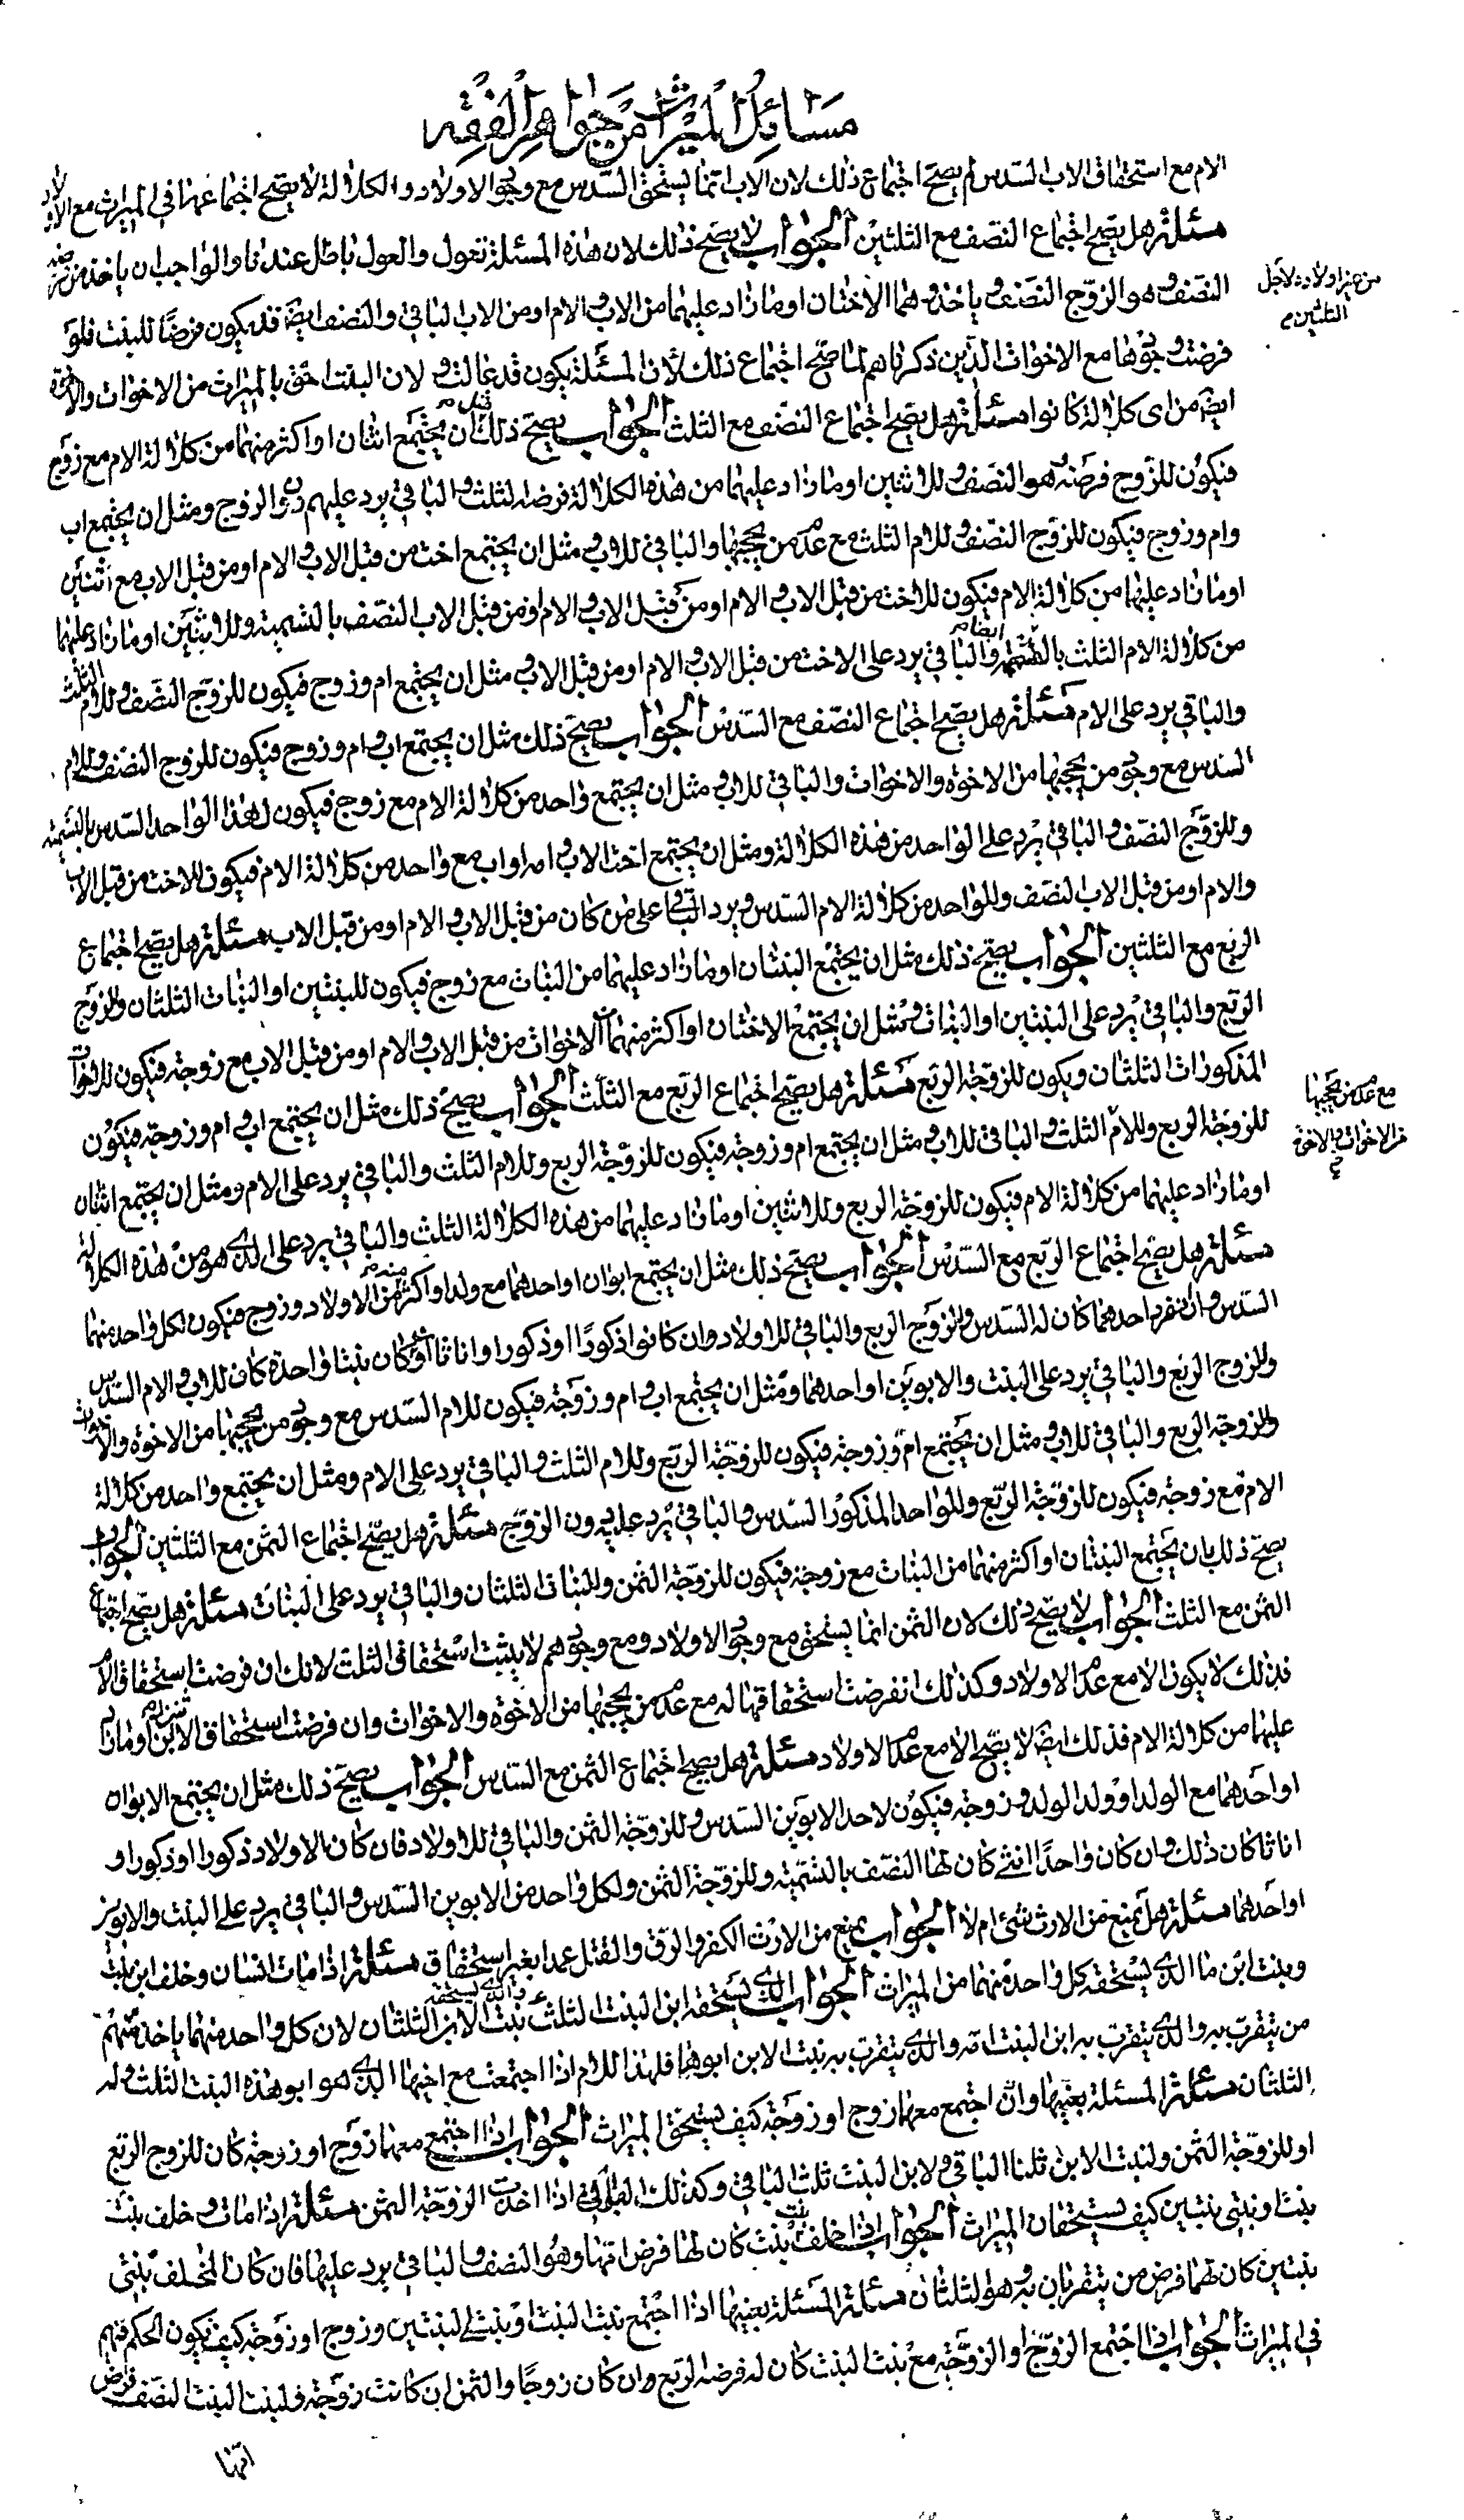 مسائل الميراث من جواهر الفقه
الام مع استحقاق الاب السدس لم يصح اجتماع ذلك لان الاب انما يستحق السدس مع وجود الاولاد والكلالة لا يصح اجتماعها في الميراث مع الاولاد
مسئلة هل يصح اجتماع النصف مع الثلثين الجواب لا يصح ذلك لان هذه المسئلة تعول والعول باطل عندنا والواجب ان ياخذ من فرضه
من هذا ولاد لاجل
الثلثين م
النصف وهو الزوج النصف وياخذ وهما الاختان او ما زاد عليهما من الاب والام او من الاب الباقي والنصف ايضا قد يكون فرضا للبنت فلو
فرضت وجودها مع الاخوات الذين ذكرناهم لما صح اجتماع ذلك لان المسئلة يكون قد عالت و لان البنت احق بالميراث من الاخوات والاخوة
ايضا من اى كلالة كانوا مسئلة هل يصح اجتماع النصف مع الثلث الجواب يصح ذلك مثل ان يجتمع اثنان او اكثر منهما من كلالة الام مع زوج
فيكون للزوج فرضه وهو النصف وللاثنين او ما زاد عليهما من هذه الكلالة فرضه الثلث والباقي يرد عليهم دون الزوج ومثل ان يجتمع اب
وام وزوج فيكون للزوج النصف وللام الثلث مع عدم من يحجبها والباقي للاب ومثل ان يجتمع اخت من قبل الاب والام او من قبل الاب مع اثنين
او ما زاد عليهما من كلالة الام فيكون للاخت من قبل الاب والام او من قبل الاب والام او من قبل الاب النصف بالتسمية وللاثنين او ما زاد عليهما
من كلالة الام الثلث بالتسمية ايضا م والباقي يرد على الاخت من قبل الاب والام او من قبل الاب ومثل ان يجتمع ام وزوج فيكون للزوج النصف وللام الثلث
والباقي يرد على الام مسئلة هل يصح اجتماع النصف مع السدس الجواب يصح ذلك مثل ان يجتمع اب وام وزوج فيكون للزوج النصف وللام
السدس مع وجود من يحجبها من الاخوة والاخوات والباقي للاب ومثل ان يجتمع واحد من كلالة الام مع زوج فيكون لهذا الواحد السدس بالتسمية
وللزوج النصف والباقي يرد على الواحد من هذه الكلالة ومثل ان يجتمع اخت الاب وام او اب مع واحد من كلالة الام فيكون للاخت من قبل الاب
والام او من قبل الاب النصف وللواحد من كلالة الام السدس ويرد الباقي على من كان من قبل الاب والام او من قبل الاب مسئلة هل يصح اجتماع
الربع مع الثلثين الجواب يصح ذلك مثل ان يجتمع البنتان او ما زاد عليهما من البنات مع زوج فيكون للبنتين او البنات الثلثان وللزوج
الربع والباقي يرد على البنتين او البنات ومثل ان يجتمع الاختان او اكثر منهما من الاخوات من قبل الاب والام او من قبل الاب مع زوجة فيكون للاخوات
المذكورات الثلثان ويكون للزوجة الربع مسئلة هل يصح اجتماع الربع مع الثلث الجواب يصح ذلك مثل ان يجتمع اب وام وزوجة فيكون
مع عدم من يحجبها
من الاخوات والاخوة
للزوجة الربع وللام الثلث والباقي للاب ومثل ان يجتمع ام وزوجة فيكون للزوجة الربع وللام الثلث والباقي يرد على الام ومثل ان يجتمع اثنان
او ما زاد عليهما من كلالة الام فيكون للزوجة الربع وللاثنين او ما زاد عليهما من هذه الكلالة الثلث والباقي يرد على الذى هو من هذه الكلالة
مسئلة هل يصح اجتماع الربع مع السدس الجواب يصح ذلك مثل ان يجتمع ابوان او احدهما مع ولد او اكثر منه م من الاولاد وزوج فيكون لكل واحد منهما
السدس وان انفرد احدهما كان له السدس وللزوج الربع والباقي للاولاد وان كانوا ذكورا او ذكورا واناثا وان كان بنتا واحدة كان للاب والام السدس
وللزوج الربع والباقي يرد على البنت والابوين او احدهما ومثل ان يجتمع اب وام وزوجة فيكون للام السدس مع وجود من يحجبها من الاخوة والاخوات
وللزوجة الربع والباقي للاب ومثل ان يجتمع ام وزوجة فيكون للزوجة الربع وللام الثلث والباقي يرد على الام ومثل ان يجتمع واحد من كلالة
الام مع زوجة فيكون للزوجة الربع وللواحد المذكور السدس والباقي يرد عليه دون الزوج مسئلة هل يصح اجتماع الثمن مع الثلثين الجواب
يصح ذلك بان يجتمع البنتان او اكثر منهما من البنات مع زوجة فيكون للزوجة الثمن وللبنات الثلثان والباقي يرد على البنات مسئلة هل يصح اجتماع
الثمن مع الثلث الجواب لا يصح ذلك لان الثمن انما يستحق مع وجود الاولاد ومع وجودهم لا يثبت استحقاق الثلث لانك ان فرضت استحقاق الام
فذلك لا يكون الا مع عدم الاولاد وكذلك ان فرضت استحقاقها له مع عدم من يحجبها من الاخوة والاخوات وان فرضت استحقاق الاثنين او ما زاد
عليها من كلالة الام فذلك ايضا لا يصح الا مع عدم الاولاد مسئلة هل يصح اجتماع الثمن مع السدس الجواب يصح ذلك مثل ان يجتمع الابوان
او احدهما مع الولد او ولد الولد وزوجة فيكون لاحد الابوين السدس وللزوجة الثمن والباقي للاولاد فان كان الاولاد ذكورا او ذكورا و
اناثا كان ذلك وان كان واحدا انثى كان لها النصف بالتسمية وللزوجة الثمن ولكل واحد من الابوين السدس والباقي يرد على البنت والابوين
او احدهما مسئلة هل يمنع من الارث شئ ام لا الجواب يمنع من الارث الكفر والرق والقتل عمدا بغير استحقاق مسئلة اذا مات انسان وخلف ابن بنت
وبنت ابن ما الذى يستحقه كل واحد منهما من الميراث الجواب الذى يستحقه ابن البنت الثلث والذى يستحقه بنت الابن الثلثان لان كل واحد منهما ياخذ سهم
من يتقرب به والذى يتقرب به ابن البنت امه والذى يتقرب به بنت الابن ابوها فلهذا للام اذا اجتمعت مع اخيها الذى هو ابو هذه البنت الثلث وله
الثلثان مسئلة المسئلة بعينها وان اجتمع معها زوج او زوجة كيف يستحق الميراث الجواب اذا اجتمع معهما زوج او زوجة كان للزوج الربع
او للزوجة الثمن ولبنت الابن ثلثا الباقي ولابن البنت ثلث الباقي وكذلك الباقي اذا اخذت الزوجة الثمن مسئلة اذا مات وخلف بنت
بنت او بنتى بنتين كيف يستحقان الميراث الجواب اذا خلف بنت بنت كان لها فرض امها وهو النصف والباقي يرد عليها فان كان المخلف بنتى
بنتين كان لهما فرض من يتقربان به وهو الثلثان مسئلة المسئلة بعينها اذا اجتمع بنت البنت او بنتى البنتين وزوج او زوجة كيف يكون الحكم فيهم
في الميراث الجواب اذا اجتمع الزوج او الزوجة مع بنت البنت كان له فرضه الربع وان كان زوجا والثمن ان كانت زوجة فلبنت البنت النصف فرض
امها